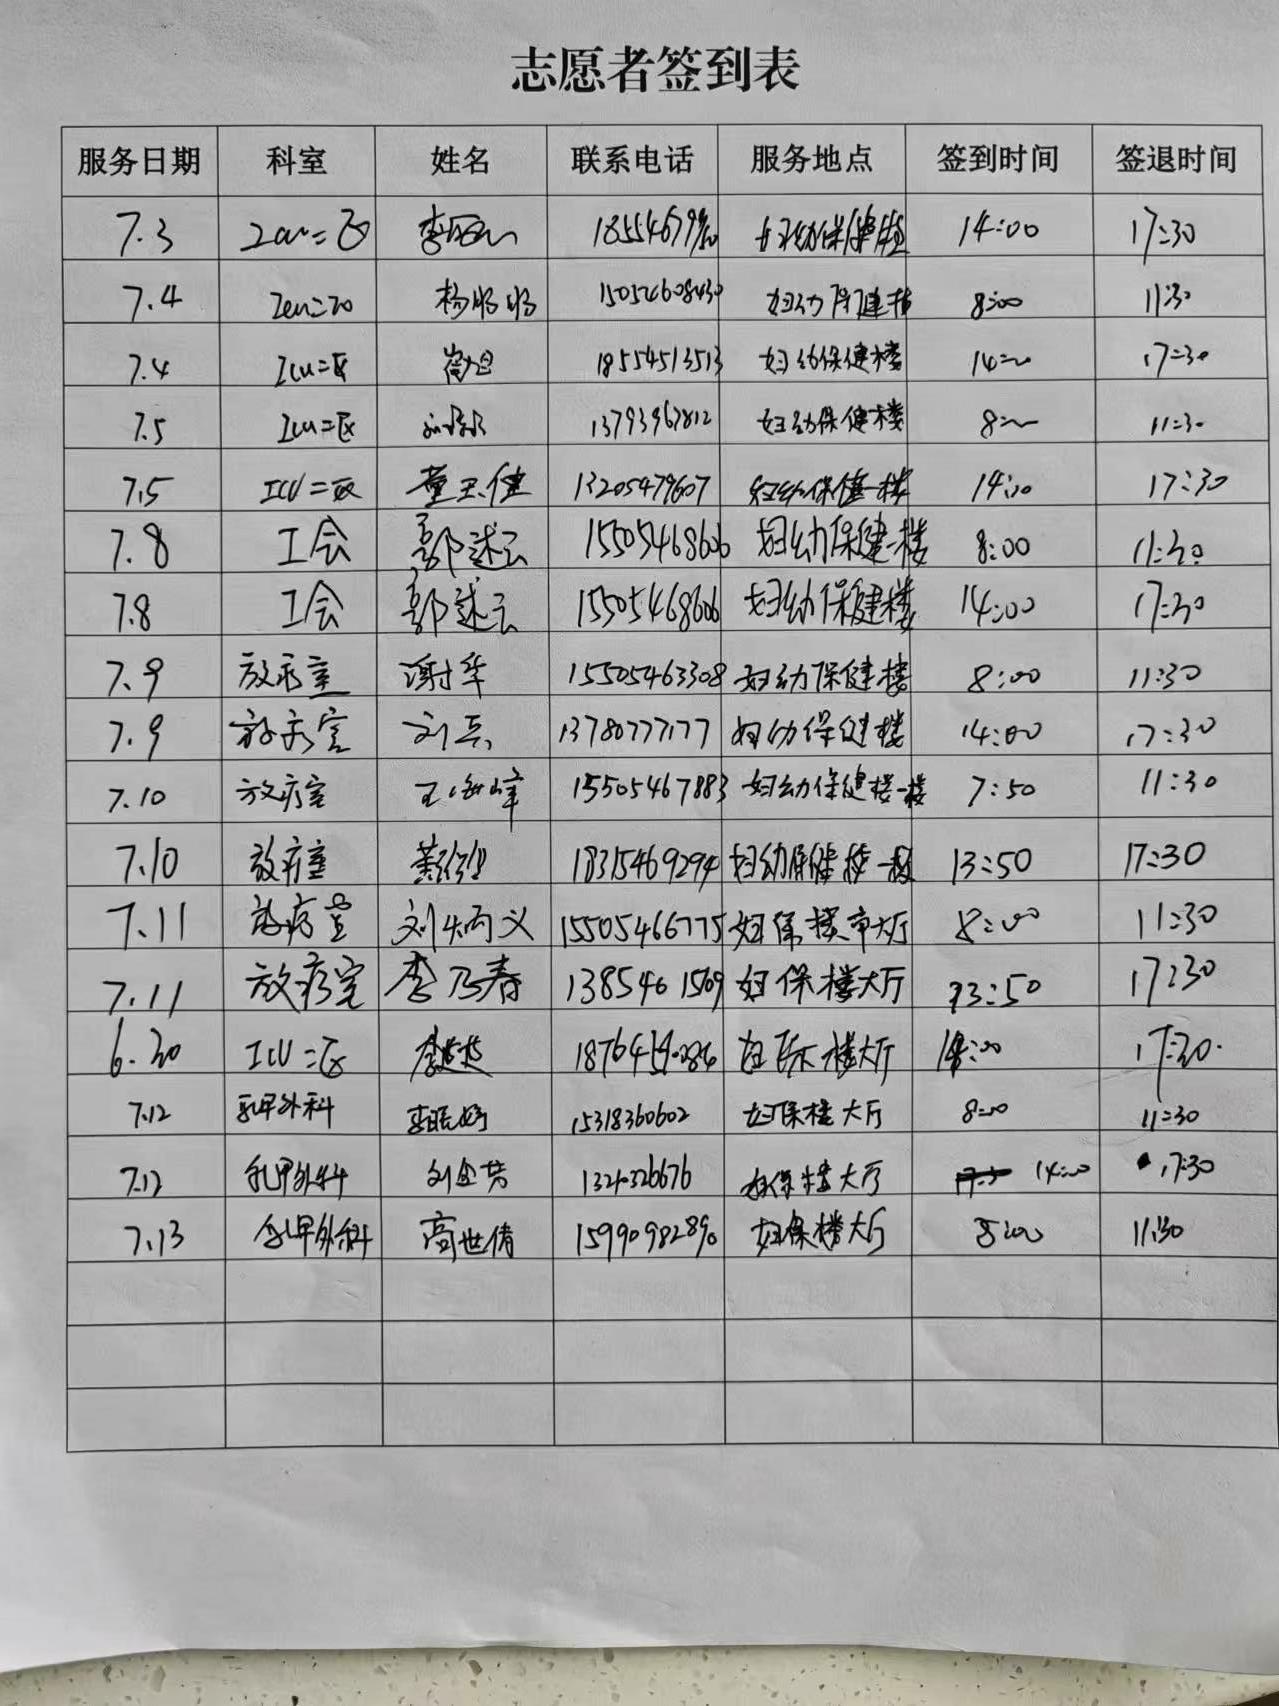 志愿者签到表
服务日期 科室 姓名 联系电话 服务地点 签到时间 签退时间
7.3 ICU二区 妇幼保健楼 14:00 17:30
7.4 ICU二区 杨盼盼 15054608430 妇幼保健楼 8:00 11:30
7.4 ICU二区 18554513513 妇幼保健楼 14:00 17:30
7.5 ICU二区 13793967812 妇幼保健楼 8:00 11:30
7.5 ICU二区 董玉健 13205479607 妇幼保健一楼 14:00 17:30
7.8 工会 郭述云 15505468606 妇幼保健一楼 8:00 11:30
7.8 工会 郭述云 15505468606 妇幼保健楼 14:00 17:30
7.9 放疗室 谢华 15505463308 妇幼保健楼 8:00 11:30
7.9 放疗室 刘兵 13780777177 妇幼保健楼 14:00 17:30
7.10 放疗室 王海峰 15505467883 妇幼保健楼一楼 7:50 11:30
7.10 放疗室 18315469294 妇幼保健楼一楼 13:50 17:30
7.11 放疗室 刘炳义 15505466775 妇保楼大厅 8:00 11:30
7.11 放疗室 李乃春 1385461569 妇保楼大厅 13:50 17:30
6.30 ICU二区 妇保楼大厅 14:00 17:30
7.12 乳甲外科 15318360602 妇保楼大厅 8:00 11:30
7.12 乳甲外科 刘金芳 妇保楼大厅 14:00 17:30
7.13 乳甲外科 高世倩 15990982890 妇保楼大厅 8:00 11:30